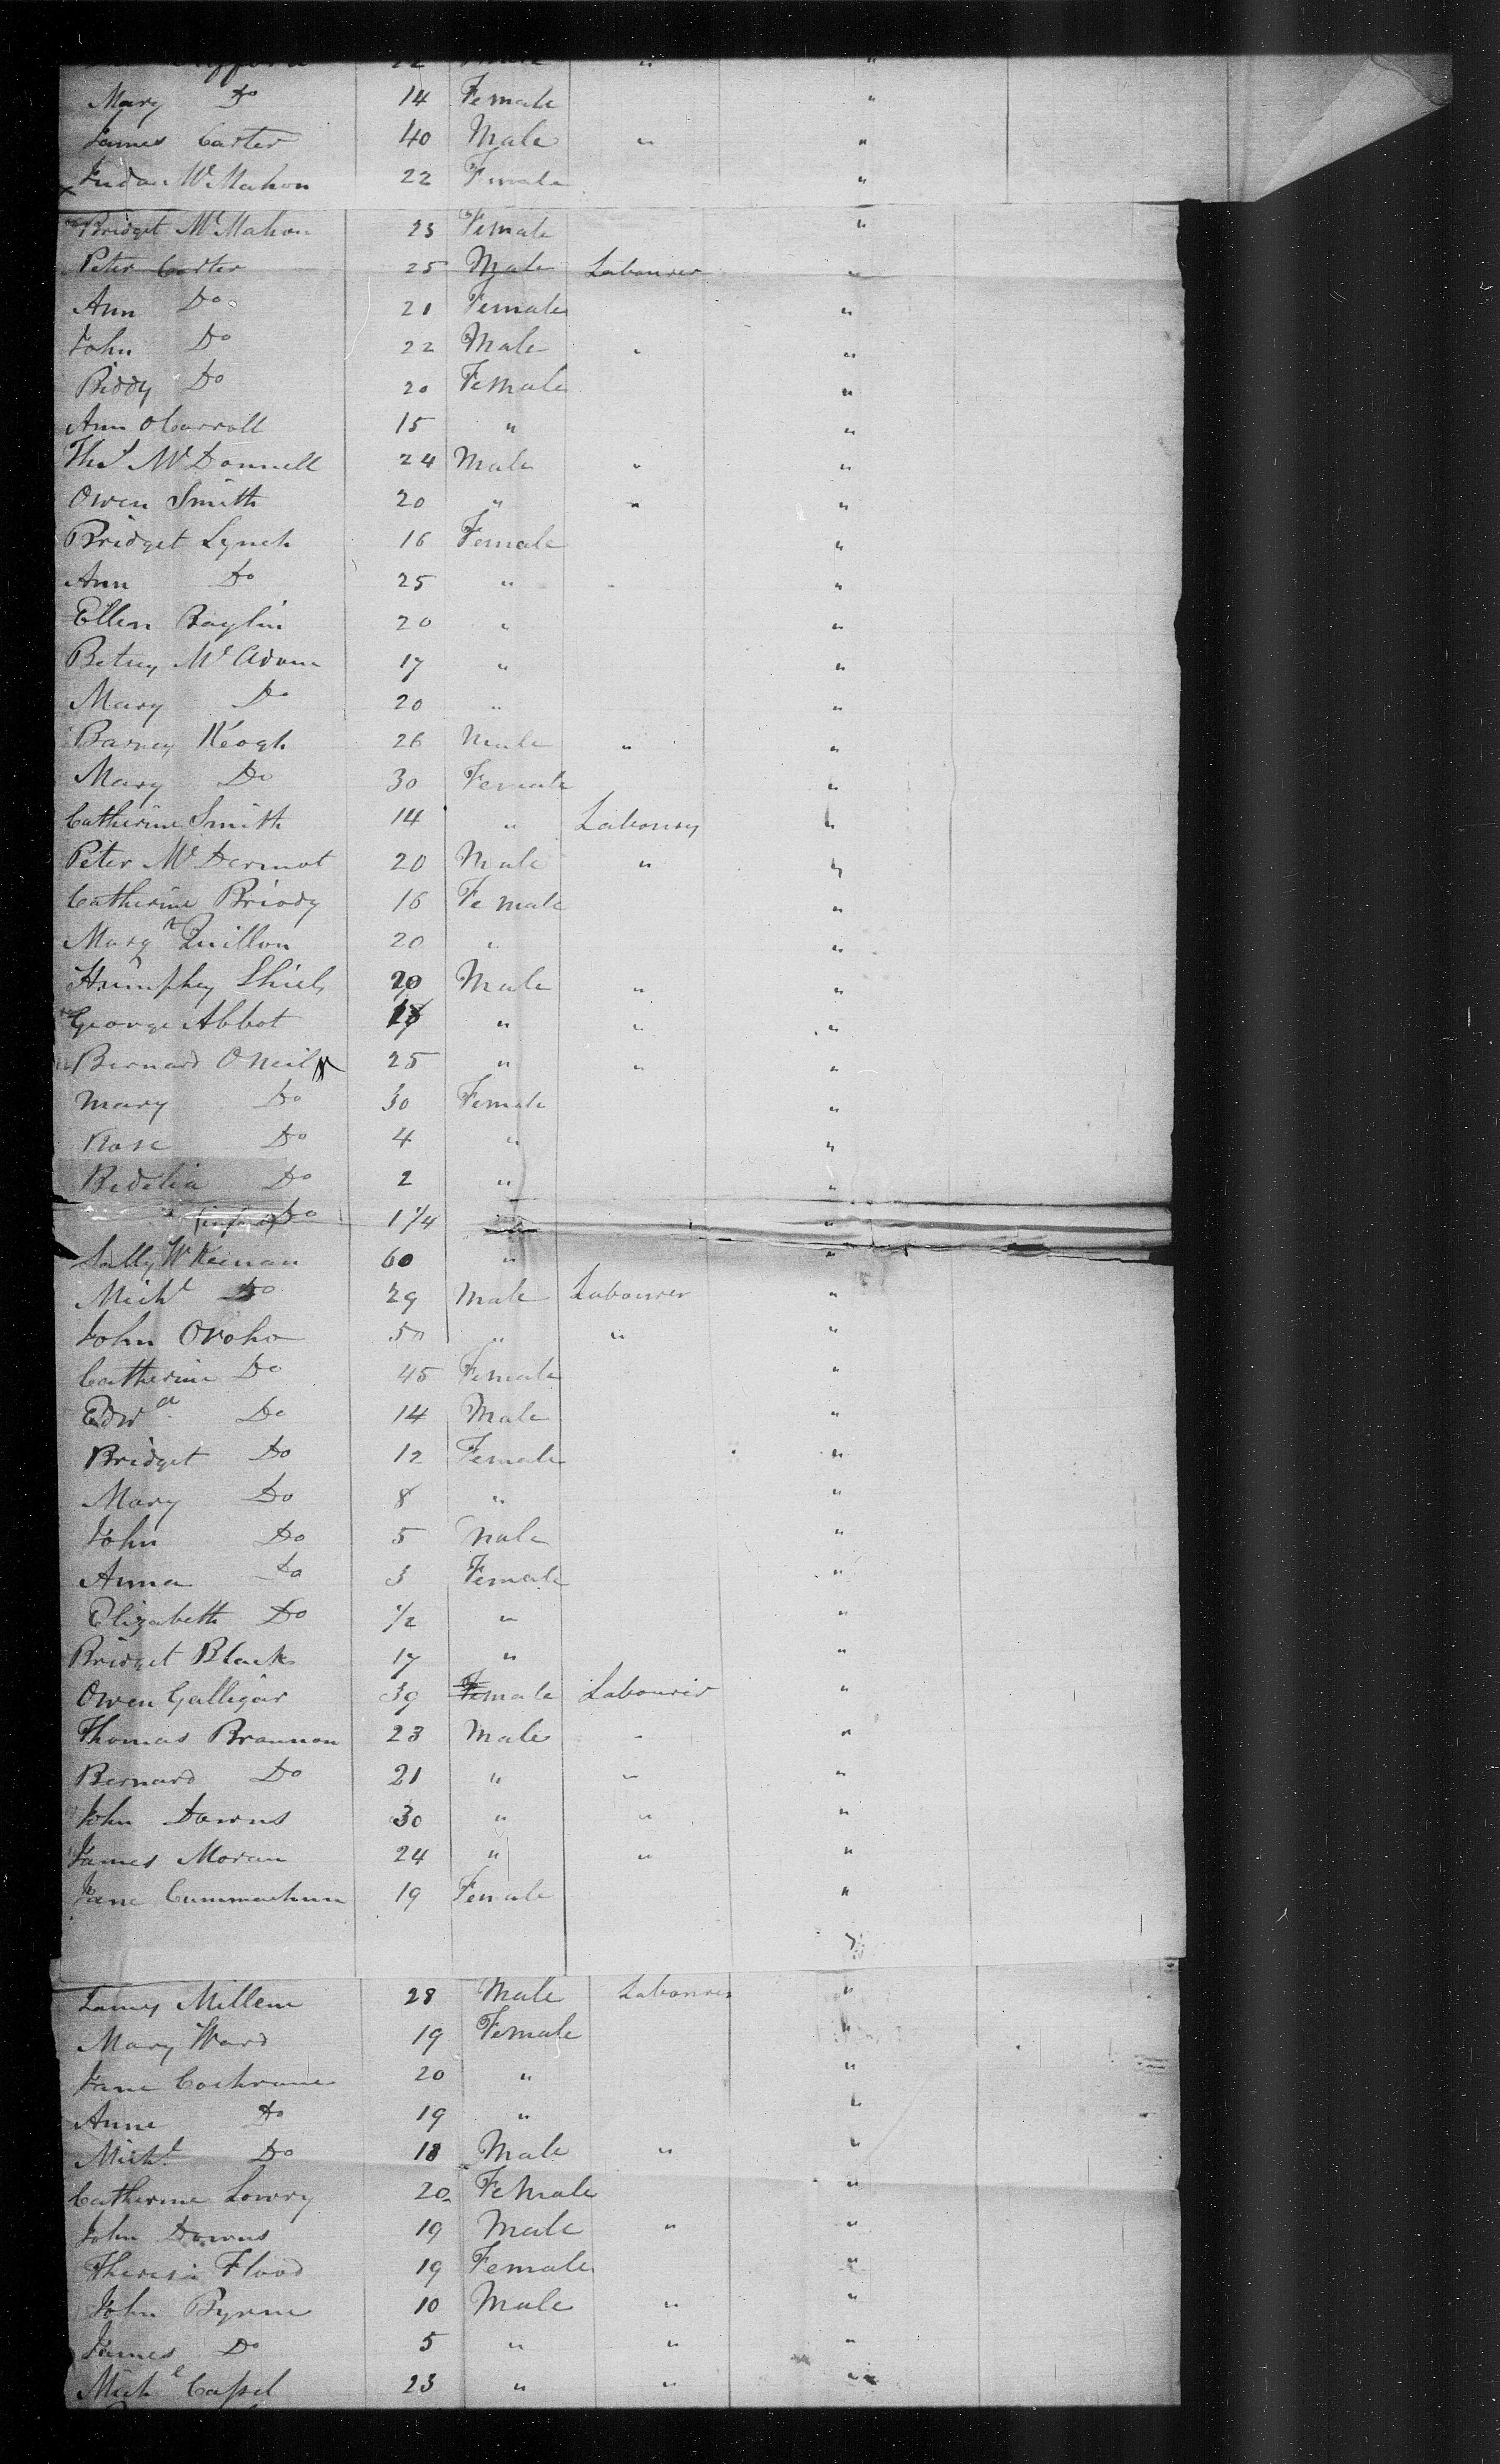 22 Male " "
Mary Do 14 Female "
James Carter 40 Male " "
McMahon 22 Female "
Bridget McMahon 23 Female "
Peter Carter 25 Male Labourer "
Ann Do 21 Female "
John Do 22 Male " "
Biddy Do 20 Female "
Ann OCarroll 15 " "
Thos McDonnell 24 Male " "
Owen Smith 20 " " "
Bridget Lynch 16 Female "
Ann Do 25 " "
Ellen 20 " "
Betsey McAdam 17 " "
Mary Do 20 " "
Barney Keogh 26 Male " "
Mary Do 30 Female "
Catherine Smith 14 " "
Peter McDermot 20 Male " "
Catherine Briody 16 Female "
Margt Quillon 20 " "
Humphey Shiels 20 Male " "
George Abbot " " "
Bernard ONeil 25 " " "
Mary Do 30 Female "
Rose Do 4 " "
Bedelia Do 2 " "
Do 1 1/4 " "
Sally McKeenan 60 " "
Michl Do 29 Male Labourer "
John Oroho 50 " " "
Catherine Do 45 Female "
Edwd Do 14 Male "
Bridget Do 12 Female "
Mary Do 8 " "
John Do 5 Male "
Anna Do 3 Female "
Elizabeth Do 1/2 " "
Bridget Black 17 " "
Owen Galligar 39 Female Labourer "
Thomas Brannon 23 Male " "
Bernard Do 21 " " "
John Downs 30 " " "
James Moran 24 " " "
Jane 19 Female "
"
Millen 28 Male Labourer "
Mary Ward 19 Female "
Jane Cochrane 20 " "
Anne Do 19 " "
Michl Do 18 Male " "
Catherine Lowry 20 Female "
John Downs 19 Male " "
Theresa Flood 19 Female "
John Byrne 10 Male " "
James Do 5 " " "
Michl 23 " " "